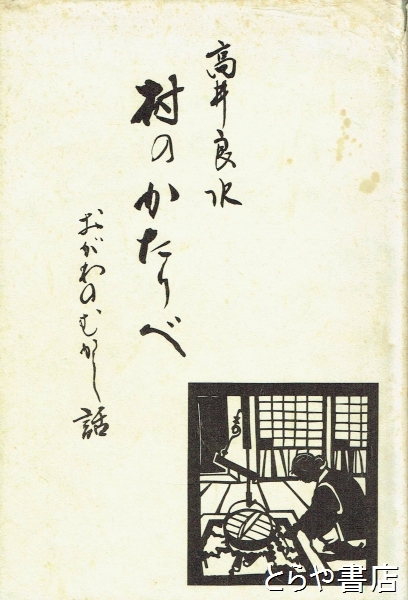 高井良水
村のかたりべ
おがわのむかし話
とらや書店